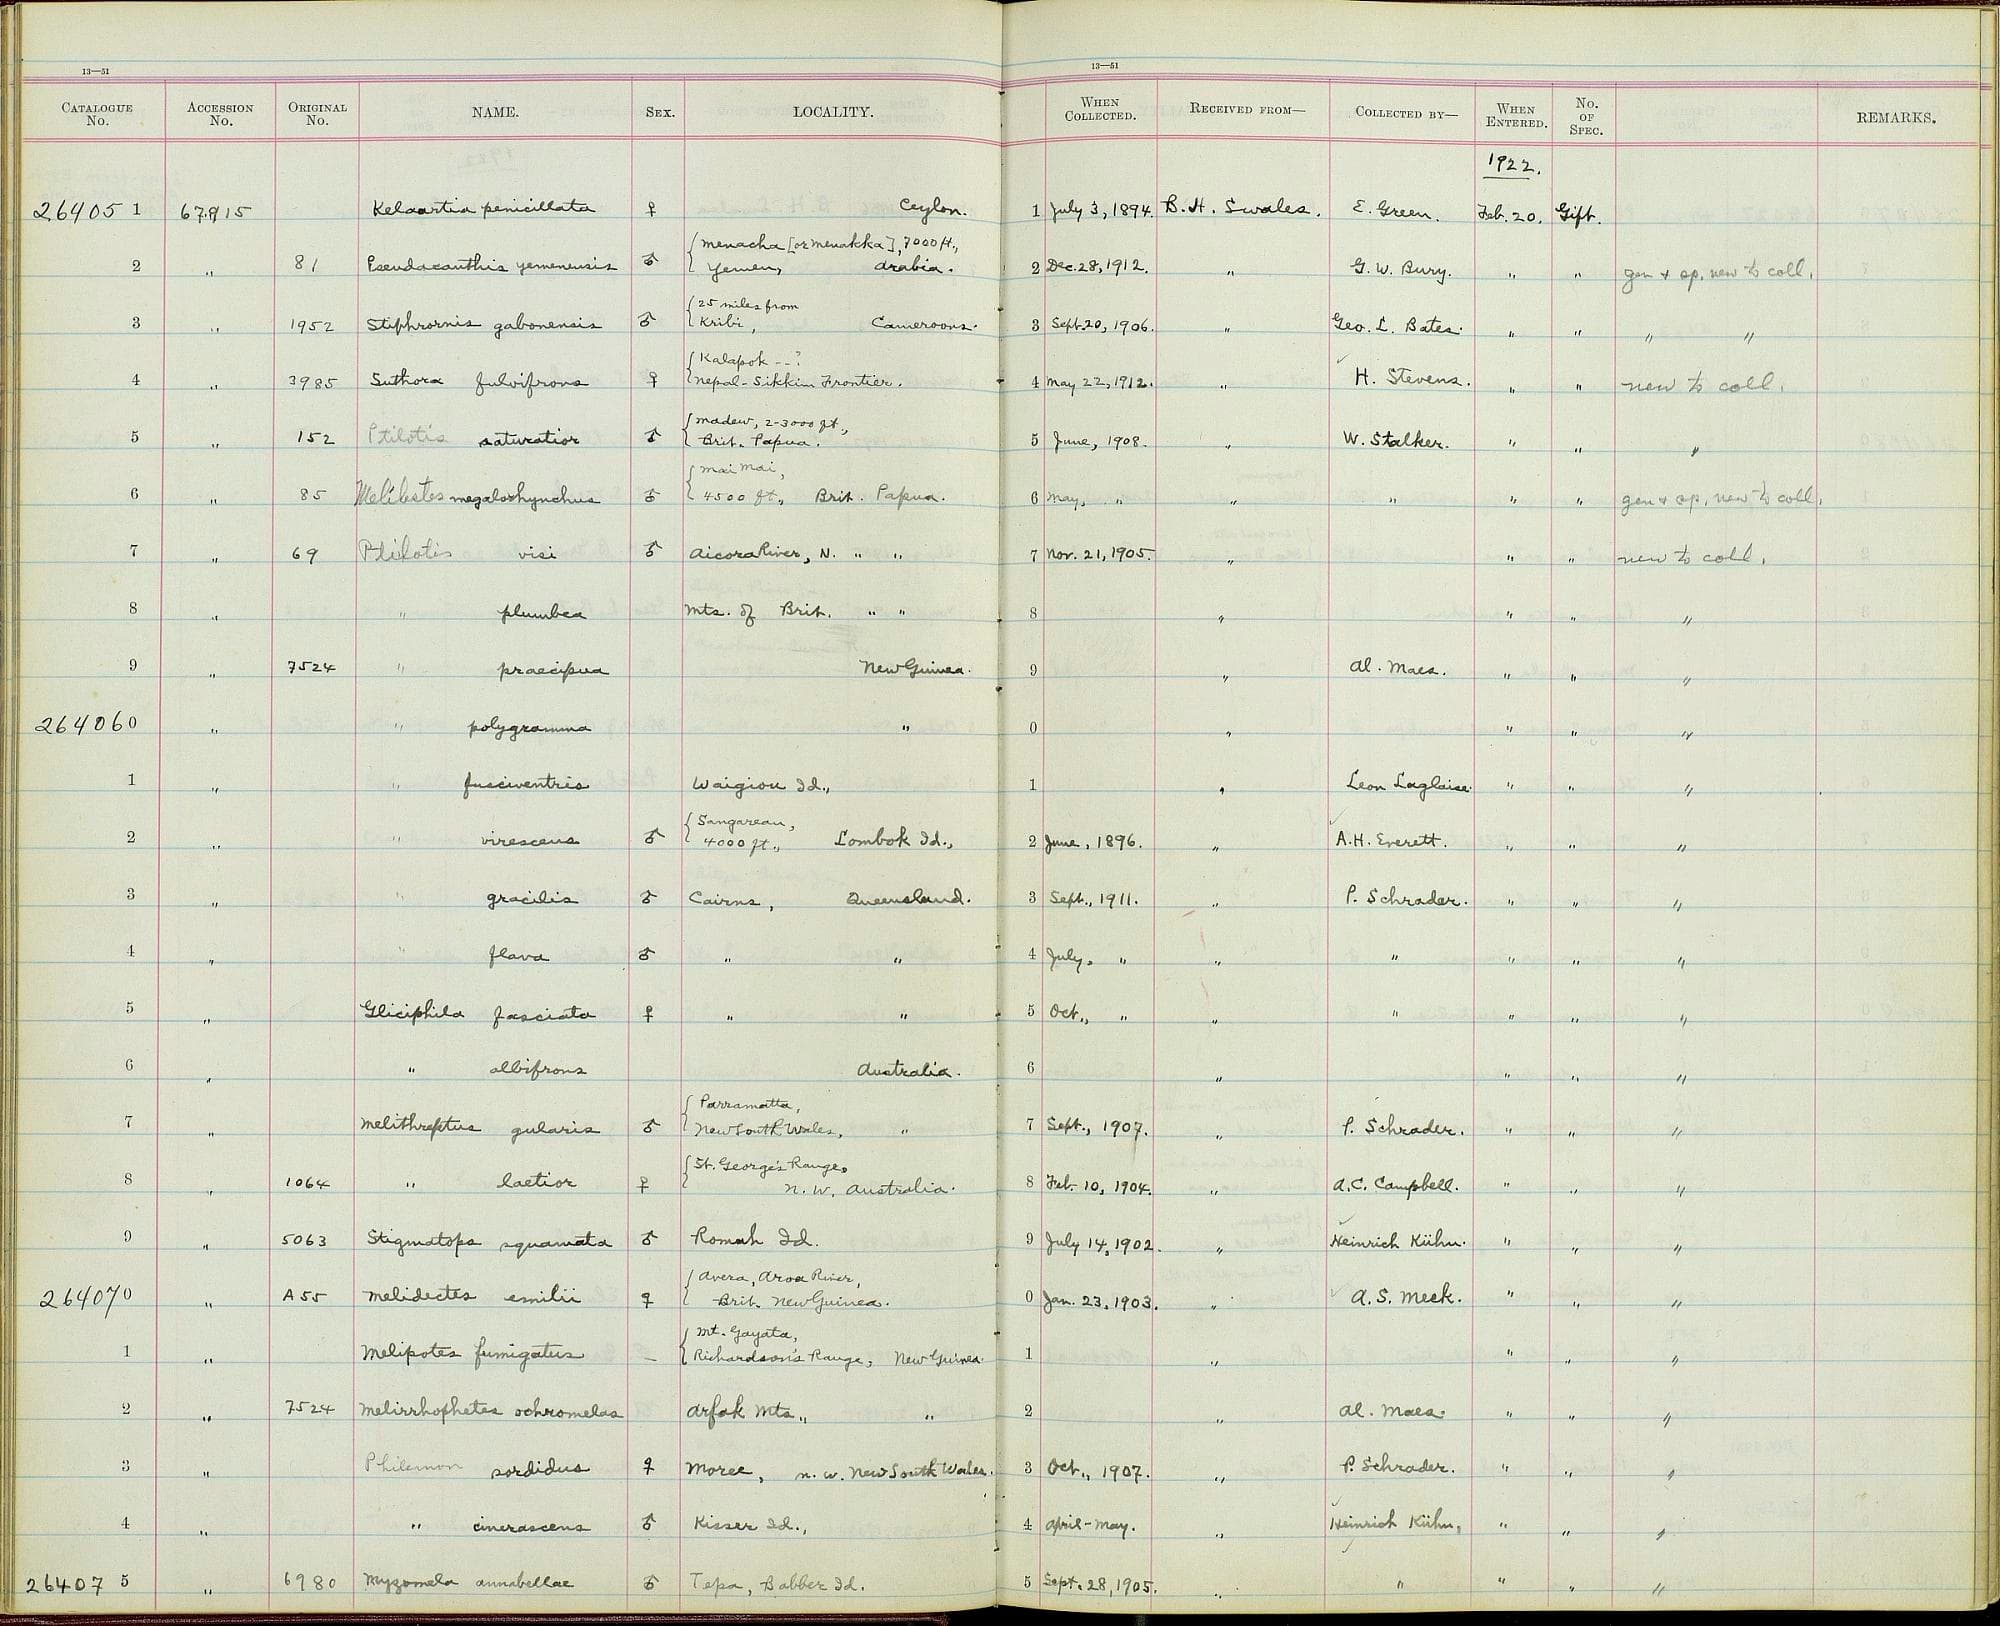 13—51
13—51
CATALOGUE No. ACCESSION No. ORIGINAL No. NAME. SEX. LOCALITY. WHEN COLLECTED. RECEIVED FROM— COLLECTED BY— WHEN ENTERED. No. OF SPEC. REMARKS.
1922.
264051 67915 Kelaartia penicillata ♀ Ceylon. 1 July 3, 1894. B. H. Swales. E. Green. Feb. 20. Gift.
2 " 81 Pseudacanthis yemenensis ♂ { Menacha [or Menakka], 7000 ft.,
Yemen, Arabia. 2 Dec. 28, 1912. " G. W. Bury. " " gen + sp. new to coll.
3 " 1952 Stiphrornis gabonensis ♂ { 25 miles from
Kribi, Cameroons. 3 Sept. 20, 1906. " Geo. L. Bates. " " " "
4 " 3985 Suthora fulvifrons ♀ { Kalapok --?
Nepal-Sikkim Frontier. 4 May 22, 1912. " H. Stevens. " " new to coll.
5 " 152 Ptilotis saturatior ♂ { Madew, 2-3000 ft.,
Brit. Papua. 5 June, 1908. " W. Stalker. " " "
6 " 85 Melilestes megalorhynchus ♂ { Mai Mai,
4500 ft., Brit. Papua. 6 May, " " " " " gen + sp. new to coll.
7 " 69 Ptilotis visi ♂ Aicora River, N. " " 7 Nov. 21, 1905. " " " new to coll.
8 " " plumbea Mts. of Brit. " " 8 " " " "
9 " 7524 " praecipua New Guinea. 9 " Al. Maes. " " "
264060 " " polygramma " 0 " " " "
1 " " fusciventris Waigiou Id., 1 " Leon Laglaise. " " "
2 " " virescens ♂ { Sangarean,
4000 ft., Lombok Id., 2 June, 1896. " A.H. Everett. " " "
3 " " gracilis ♂ Cairns, Queensland. 3 Sept., 1911. " P. Schrader. " " "
4 " " flava ♂ " " 4 July, " " " " " "
5 " Gliciphila fasciata ♀ " " 5 Oct., " " " " " "
6 " " albifrons Australia. 6 " " " "
7 " Melithreptus gularis ♂ { Parramatta,
New South Wales, " 7 Sept., 1907. " P. Schrader. " " "
8 " 1064 " laetior ♀ { St. George's Range,
N. W. Australia. 8 Feb. 10, 1904. " A.C. Campbell. " " "
9 " 5063 Stigmatops squamata ♂ Romah Id. 9 July 14, 1902. " Heinrich Kühn. " " "
264070 " A55 Melidectes emilii ♀ { Avera, Aroa River,
Brit. New Guinea. 0 Jan. 23, 1903. " A. S. Meek. " " "
1 " Melipotes fumigatus — { Mt. Gayata,
Richardson's Range, New Guinea. 1 " " " "
2 " 7524 Melirrhophetes ochromelas Arfak Mts., " 2 " Al. Maes. " " "
3 " Philemon sordidus ♀ Moree, N. W. New South Wales. 3 Oct., 1907. " P. Schrader. " " "
4 " " cinerascens ♂ Kisser Id., 4 April-May. " Heinrich Kühn, " " "
264075 " 6980 Myzomela annabellae ♂ Tepa, Babber Id. 5 Sept. 28, 1905. " " " " "